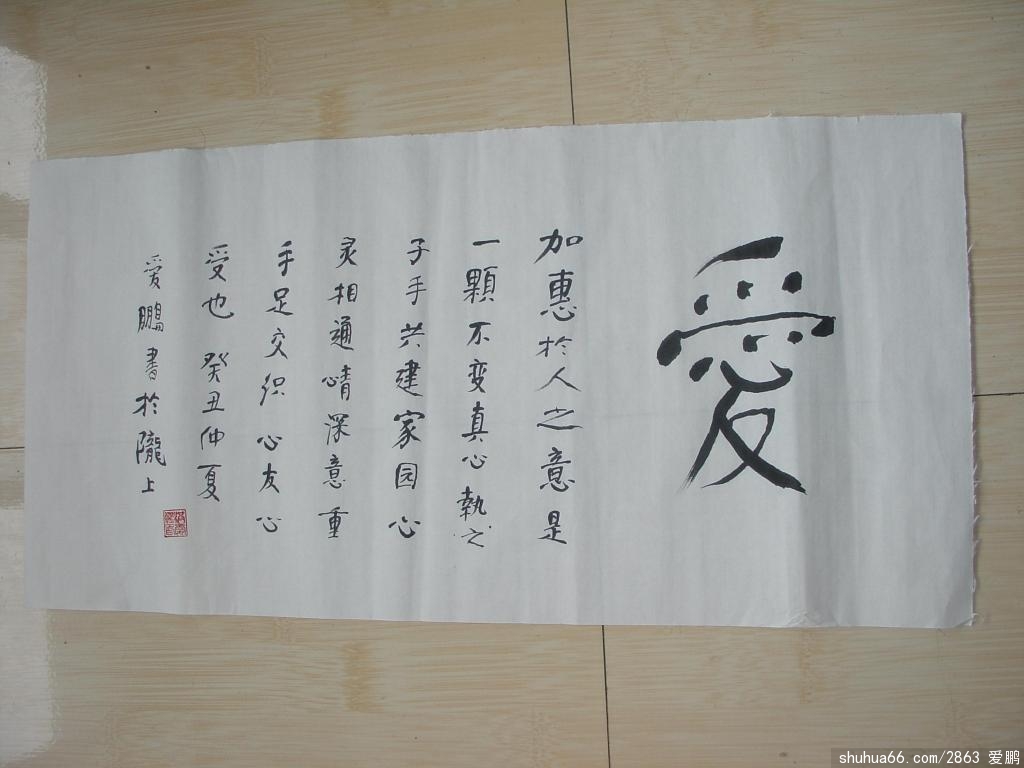 愛
加惠於人之意是
一顆不变真心執之
子手共建家园心
灵相通情深意重
手足交织心友心
受也 癸丑仲夏
愛鵬書於隴上
shuhua66.com/2863 爱鹏